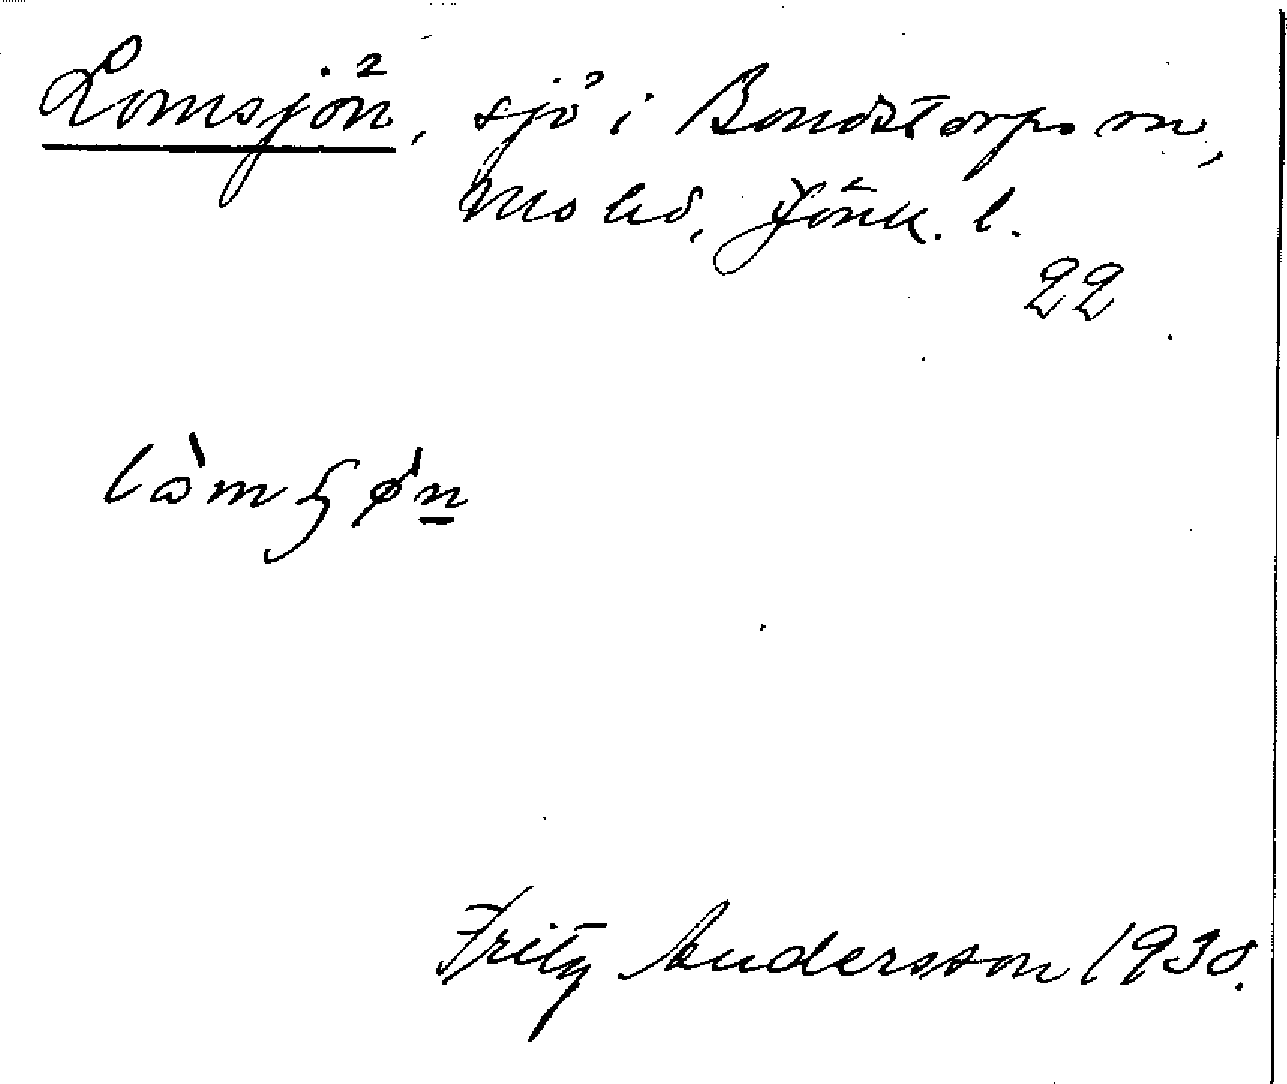 Lomsjön, sjö i Bondstorps sn,
Mo hd, Jönk. l.
22
Fritz Andersson 1938.